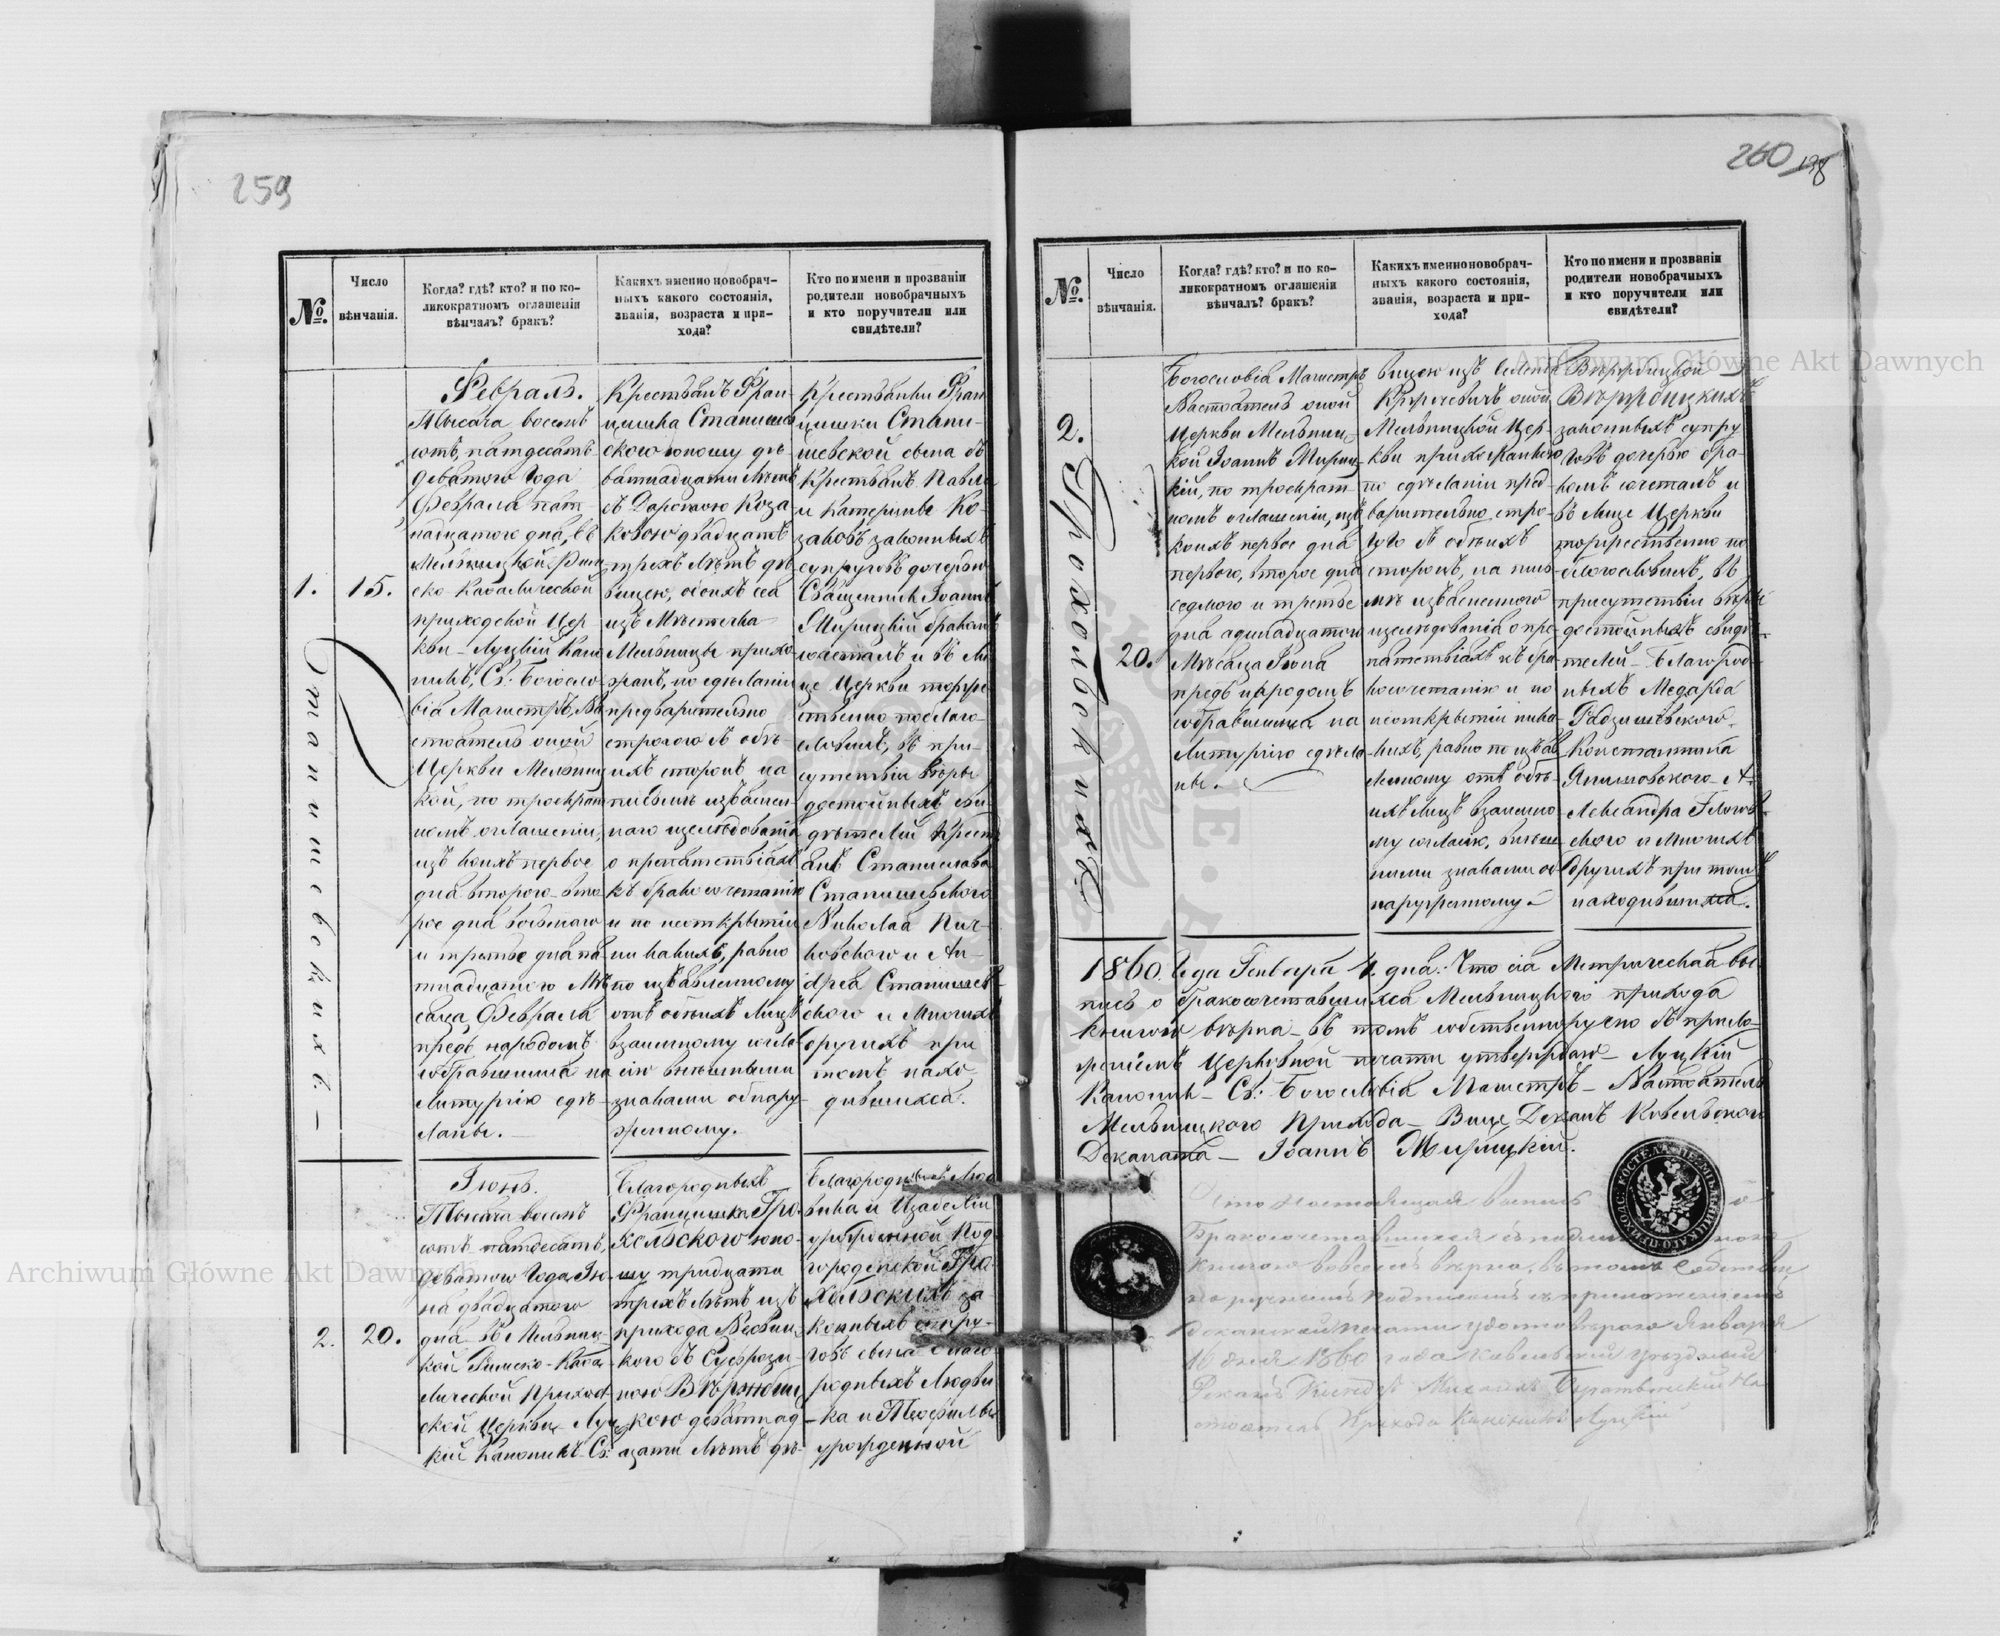 259
№.
Число
вѣнчанія.
Когда? гдѣ? кто? и по ко-
ликократномъ оглашеніи
вѣнчалъ? бракъ?
Какихъ именно новобрач-
ныхъ какого состоянія,
званія, возраста и при-
хода?
Кто по имени и прозванію
родители новобрачныхъ
и кто поручители или
свидѣтели?
1.
Станишевскихъ.
15.
Февраль.
Тысяча восемь
сотъ, пятдесятъ
девятого года
Февраля пят-
надцатого дня, въ
Мельницкой Рим
ско-Каѳолической
приходской Цер
кви – Луцкій Кано
никъ, Св: Богосло
вія Магистръ, На
стоятель оной
Церкви Мельниц
кой, по троекрат
номъ оглашеніи,
изъ коихъ первое
дня второго вто
рое дня восьмаго
и третье дня пя
тнадцатого Мѣ
сяца Февраля
предъ народомъ
собравшимся на
Литургію сдѣ-
ланы. –
Крестьянъ Фран-
цишка Станишев
ского юношу дъ
ватнадцати лѣтъ
съ Доротою Коза
ковою двадцать
трехъ лѣтъ дѣ
вицею, обоихъ
изъ Мѣстечка
Мельницы прихо
жанъ, по сдѣланіи
предварительно
строгого съ обѣ-
ихъ сторонъ на
письмѣ изъяснен
наго изслѣдованія
о препятствіяхъ
къ бракосочетанію
и по неоткрытіи
ни какихъ, равно
по изъявленному
отъ обѣихъ Лицъ
взаимному согла
сію внѣшными
знаками обнару-
женному.
Крестьянки Фран
цишки Стани-
шевской сына съ
Крестьянъ Павла
и Катерины Ко-
заковъ законныхъ
супруговъ дочерью
Священникъ Іоаннъ
Мирицкій бракомъ
сочеталъ и въ Ли
це Церкви торже
ственно поблаго-
словилъ, въ при-
сутствіи вѣры
достойныхъ сви
дѣтелей Кресть
янъ: Станислава
Станишевского
Николая Пич-
ковского и Ан-
дрея Станишев-
ского и Многихъ
другихъ при
томъ нахо
дившихся.
2.
20.
Іюнь.
Тысяча восемь
сотъ пятдесятъ,
девятого Года Ію-
ня двадцатого
дня въ Мельниц-
кой Римско-Каѳо
лической Приход
ской Церкви Луц
кій Каноникъ Св:
Благородныхъ
Францишка Гро-
хольского юно-
шу тридцати
трехъ лѣтъ изъ
прихода
кого съ Суфрози-
ною Вержбиц
кою девятнад
цати лѣтъ дѣ-
Благородныхъ Люд
вика и Изабеліи
урожденной Под
городенской Гро
хольскихъ за
конныхъ супру-
говъ сына Благо
родныхъ Людви
ка и Теофили
урожденной
260
198
№.
Число
вѣнчанія.
Когда? гдѣ? кто? и по ко-
ликократномъ оглашеніи
вѣнчалъ? бракъ?
Какихъ именно новобрач-
ныхъ какого состоянія,
званія, возраста и при-
хода?
Кто по имени и прозванію
родители новобрачныхъ
и кто поручители или
свидѣтели?
2.
Грохольскихъ
20.
Богословія Магистръ
Настоятель оной
Церкви Мельниц-
кой Іоаннъ Мириц
кій, по троекрат-
номъ оглашеніи, изъ
коихъ первое дня
первого, второе дня
седмого и третье
дня адинадцатого
Мѣсяца Іюня
предъ народомъ
собравшимся на
Литургію сдѣла
ны.
вицею изъ
оной
Мельницкой Цер-
кви прихожанкою
по сдѣланіи пред
варительно стро-
гого съ обѣихъ
сторонъ, на пись
мѣ изъясненного
изслѣдованія о пре
пятствіяхъ къ бра
косочетанію и по
неоткрытіи ника-
кихъ, равно по изъяв
ленному отъ обѣ-
ихъ Лицъ взаимно
му согласію, внѣш
ными знаками об
наруженному –
Вержбицкой
Вержбицкихъ
законныхъ супру
говъ дочерью бра-
комъ сочеталъ и
въ Лице Церкви
торжественно по
благословилъ, въ
присутствіи вѣры
достойныхъ свидѣ-
телей – Благород
ныхъ Медарда
Радзишевского
Константина
Янишовского А-
лександра
ского и Многихъ
другихъ при томъ
находившихся.
1860. Года Генваря 4. дня: Что сія Метрическая вы-
пись о бракосочетавшихся Мельницкого прихода
книгою вѣрна – въ томъ собственноручно съ прило-
женіемъ Церковной печати утверждаю – Луцкій
Каноникъ – Св: Богословія Магистръ – Настоятель
Мельницкого Прихода – Вице Деканъ Ковельского
Деканата – Іоаннъ Мирицкій.
Что настоящая выпись
Бракосочетавшихся съ подлин
книгою вовсемъ вѣрна, въ томъ собствен
норучнымъ подписомъ съ приложеніемъ
Деканской печати удостовѣряю Января
16 дня 1860 года Ковельскій Уѣздный
Деканъ Михаилъ На
стоятель Прихода Каноникъ Луцкій
Archiwum Główne Akt Dawnych
Archiwum Główne Akt Dawnych